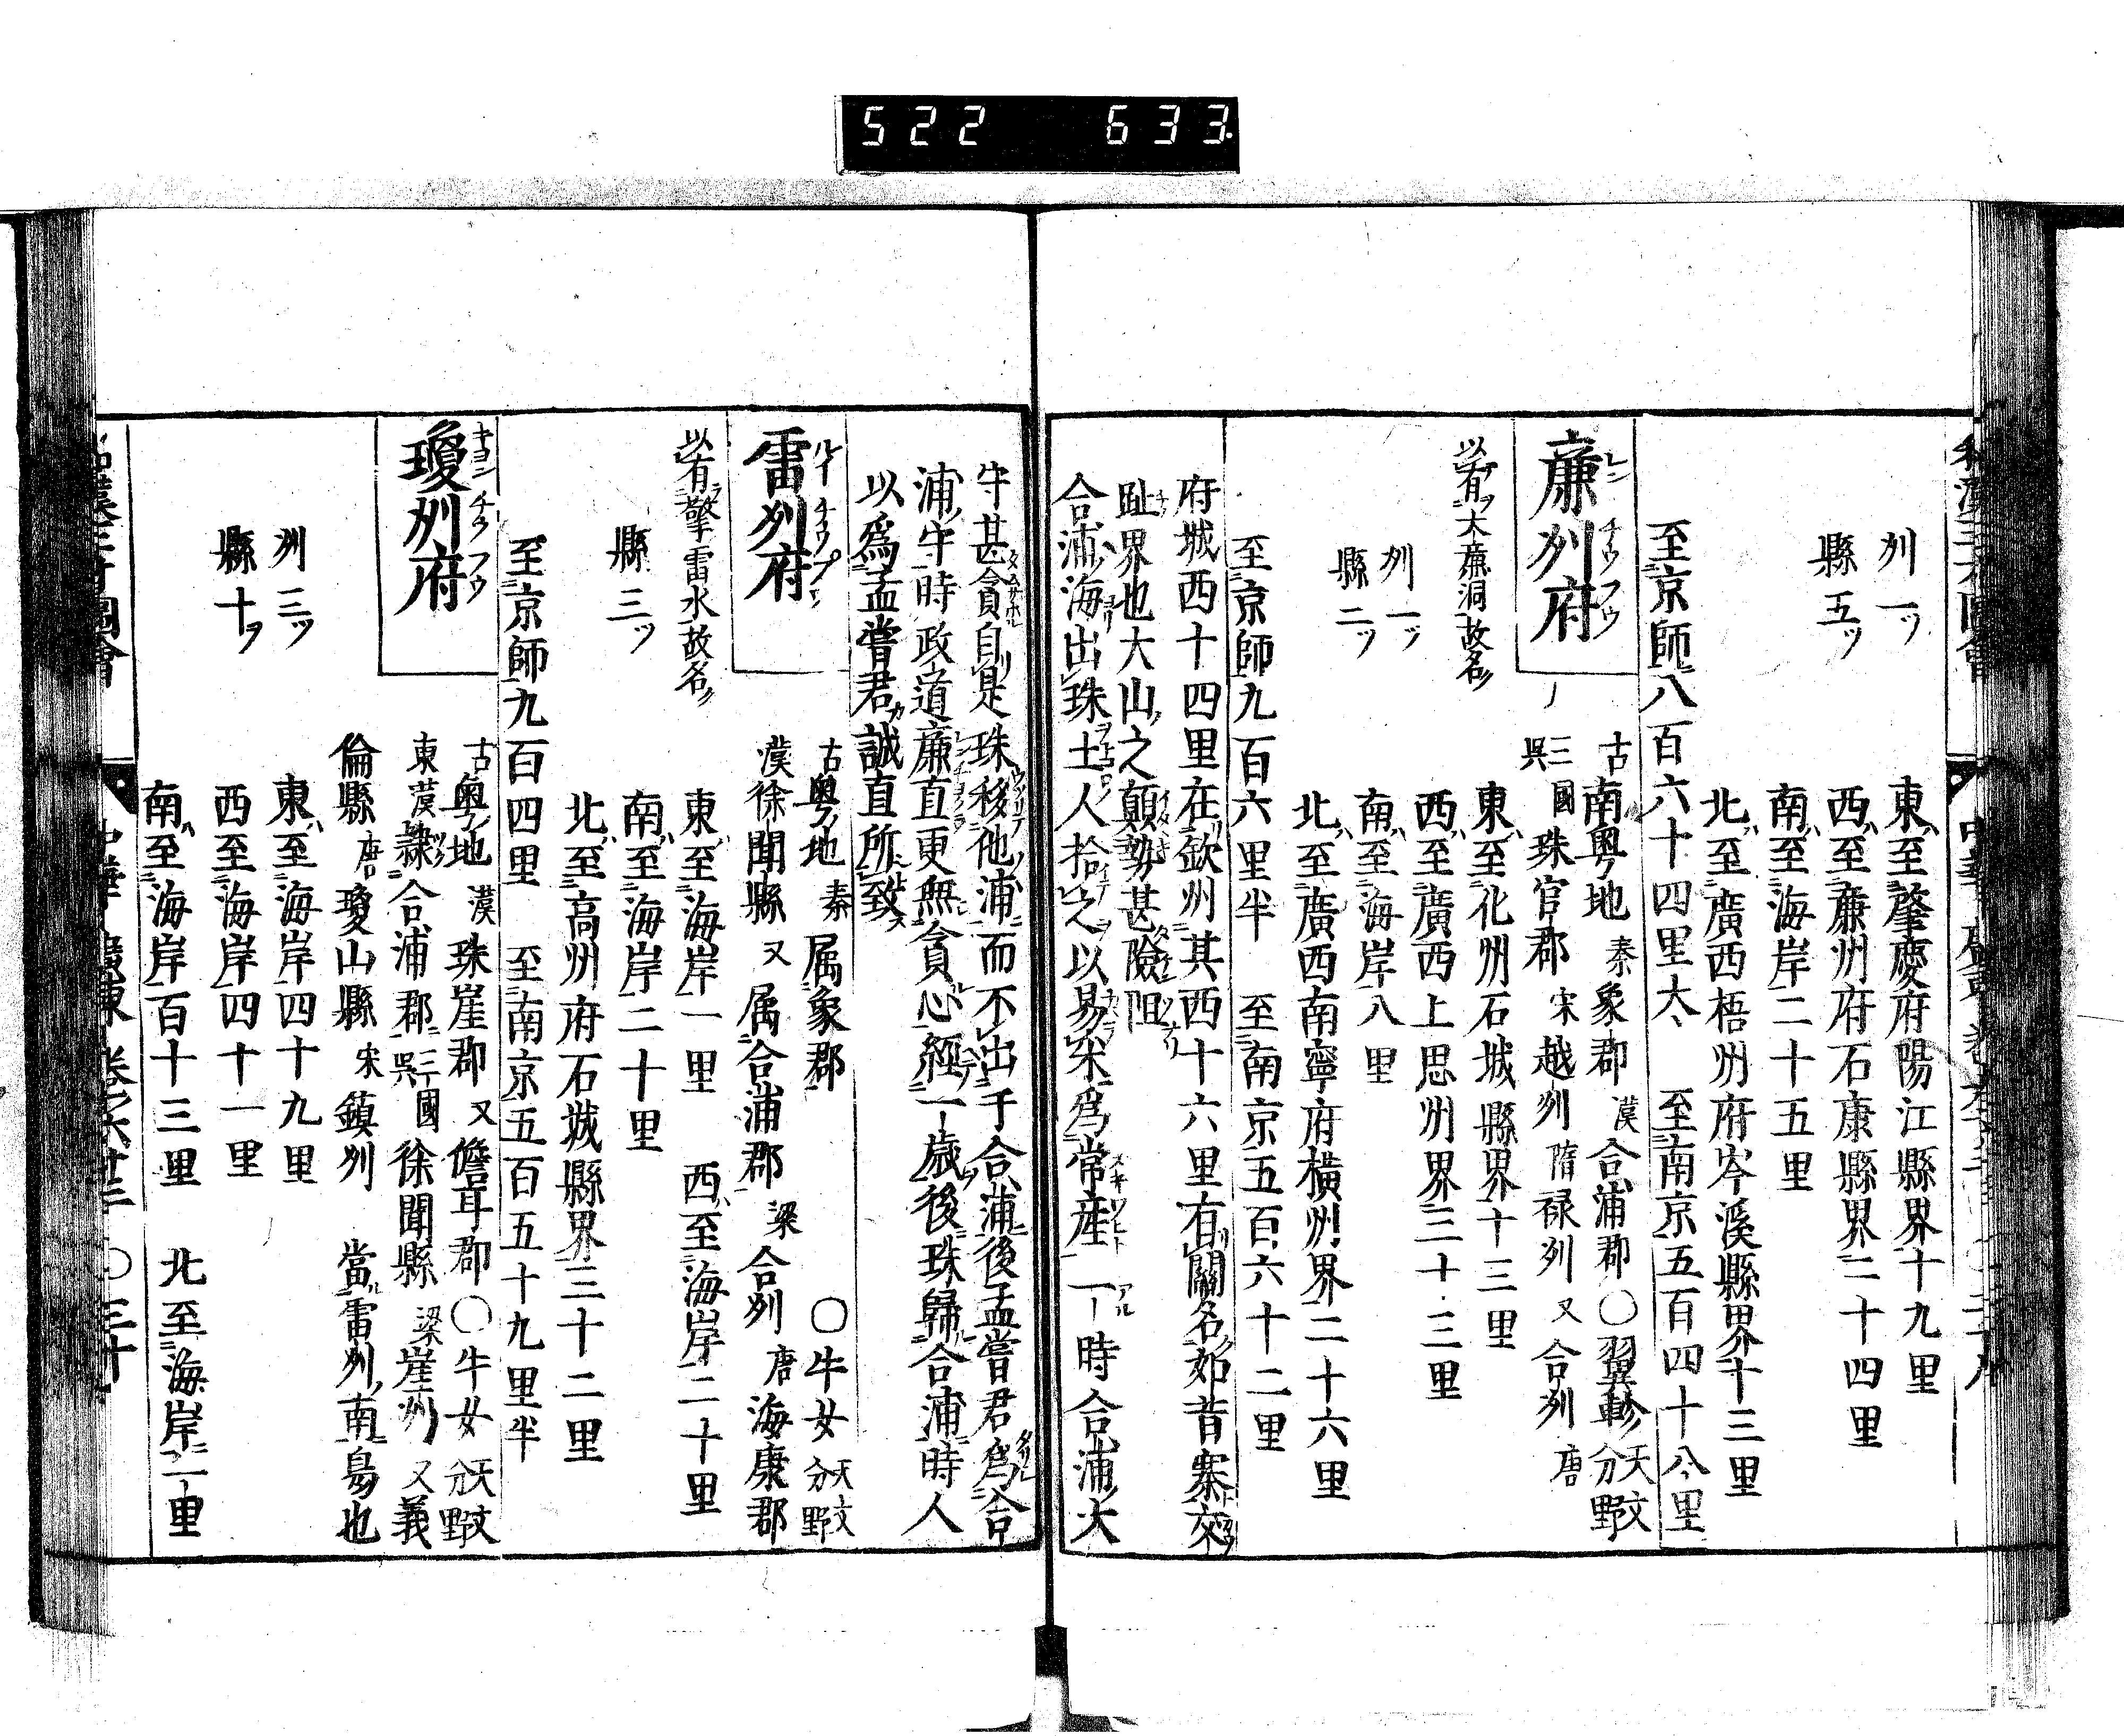 522 633
州一ツ
縣五ツ
東ハ至肇慶府陽江縣界十九里
西ハ至廉州府石康縣界二十四里
南ハ至海岸二十五里
北ハ至廣西梧州府岑溪縣界十三里
至京師八百六十四里大 至南京五百四十八里
廉州府
レンチウフウ
古南粤地 秦象郡 漢合浦郡 〇翼軫 天文分野
三國呉 珠官郡 宋越州 隋禄州 又合州 唐
以有大廉洞故名
州一ツ
縣二ツ
東ハ至化州石城縣界十三里
西ハ至廣西上思州界三十三里
南ハ至海岸八里
北ハ至廣西南寧府横州界二十六里
至京師九百六里半 至南京五百六十二里
府城西十四里在欽州其西十六里有關名如昔寨交
趾界也大山之顛勢甚險阻
合浦海出珠土人拾之以易米爲常産一時合浦大
守甚貪自是珠移他浦而不出于合浦後孟嘗君爲合
浦守時政道廉直更無貪心經一歳後珠歸合浦時人
以爲孟嘗君誠直所致
雷州府
ルイチウフウ
古粤地 秦属象郡 〇牛女 天文分野
漢徐聞縣 又属合浦郡 梁合州 唐海康郡
以有擎雷水故名
縣三ツ
東ハ至海岸一里 西ハ至海岸二十里
南ハ至海岸二十里
北ハ至高州府石城縣界三十二里
至京師九百四里 至南京五百五十九里半
瓊州府
キヨンチウフウ
古粤ノ地 漢珠崖郡 又儋耳郡 〇牛女 天文分野
東漢隷合浦郡 三國呉 徐聞縣 梁崖州 又義
倫縣 唐瓊山縣 宋鎮州 當雷州ノ南島也
州三ツ
縣十ヲ
東ハ至海岸四十九里
西至海岸四十一里
南ハ至海岸百十三里 北至海岸一里